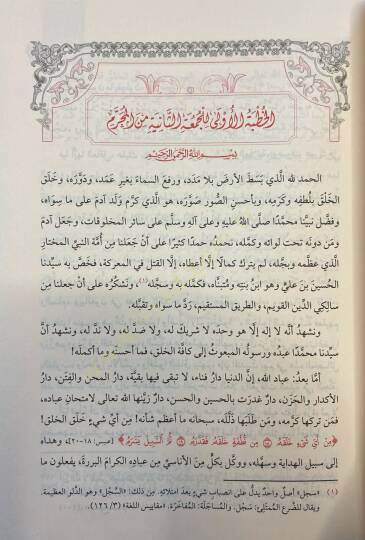 الخُطْبَةُ الأُوْلَى لِلْجُمُعَةِ الثَّانِيَةِ مِنَ المُحَرَّمِ
بِسْمِ اللَّهِ الرَّحْمَنِ الرَّحِيمِ
الحمد لله الَّذي بَسَطَ الأرضَ بلا مَدَد، ورفعَ السماءَ بغيرِ عَمَد، ودَوَّرَه، وخَلَق
الخَلْقَ بلُطْفِه وكَرمِه، وبأحسنِ الصُّور صَوَّرَه، هو الَّذي كرَّم وَلَد آدمَ على ما سِواه،
وفضَّل نبيَّنا محمَّدًا صلَّى اللهُ عليه وعلى آلِه وسلَّم على سائر المخلوقات، وجَعَل آدمَ
ومَن دونَه تحت لوائه وكمَّله، نَحمدُه حمدًا كثيرًا على أنْ جَعَلنا مِن أُمَّة النبي المختارِ
الَّذي عظَّمه وبجَّله، لم يترك كمالًا إلَّا أعطاه، إلَّا القتل في المعركة، فخَصَّ به سيِّدنا
الحُسينَ بنَ عليٍّ وهو ابنُ بنتِه ومُتبنَّاه، فكمَّله به وسجَّله(١)، ونَشكُرُه على أنْ جعلنا مِن
سَالِكِي الدِّين القويم، والطريق المستقيم، ردَّ ما سِواه وتقبَّله.
ونشهدُ أنَّه لا إلهَ إلَّا هو وحدَه لا شريكَ له، ولا ضدَّ له، ولا ندَّ له، ونشهدُ أنَّ
سيِّدنا محمَّدًا عبدُه ورسولُه المبعوثُ إلى كافَّة الخلق، فما أحسنَه وما أكملَه!
أمَّا بعدُ: عباد الله، إنَّ الدنيا دارُ فناء، لا تبقى فيها بقيَّة، دارُ المحن والفِتَن، دارُ
الأكدار والحَزَن، دارٌ غدَرَت بالحسينِ والحسن، دارٌ زيَّنها الله تعالى لامتحانِ عبادِه،
فمَن تركَها كرَّمه، ومَن طَلَبَها ذلَّلَه، سبحانه ما أعظم شأنَه! مِن أيِّ شيءٍ خلَق الخلق!
﴿مِنْ أَيِّ شَيْءٍ خَلَقَهُ ۝ مِن نُّطْفَةٍ خَلَقَهُ فَقَدَّرَهُ ۝ ثُمَّ السَّبِيلَ يَسَّرَهُ﴾ [عبس: ١٨-٢٠] وهداه
إلى سبيل الهداية وسهَّله، ووكَّل بكلٍّ مِنَ الأناسيِّ مِن عبادِه الكرامِ البررةِ، يفعلون ما
(١) «سجل» أصلٌ واحدٌ يدلُّ على انصبابِ شيءٍ بعدَ امتلائهِ. مِن ذلك: «السَّجْل» وهو الدَّلو العظيمة.
ويقال للضَّرع الممتلئ: سَجْل. والمُساجَلَة: المُفاخَرَة. «مقاييس اللغة» (٣/ ١٢٦).